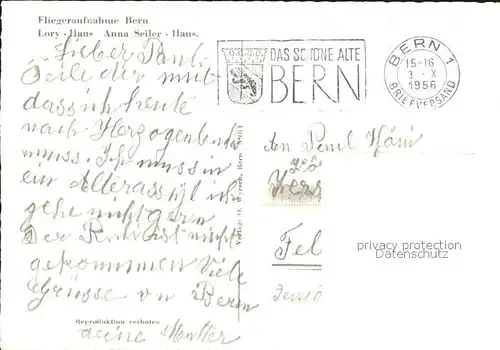 Fliegeraufnahme Bern
Lory - Haus Anna Seiler - Haus.
Lieber Paul.
Teile dir mit
dass ich heute
nach Herzogenbuchs
muss. Ich muss in
ein Altersasyl ich
gehe nicht gern
Der Rudi ist nicht
gekommen Viele
Grüsse von Bern
Reproduktion verboten
deine Mutter
DAS SCHÖNE ALTE
BERN
BERN 1
15-16
3 - X
1956
BRIEFVERSAND
Paul
Fel
privacy protection
Datenschutz